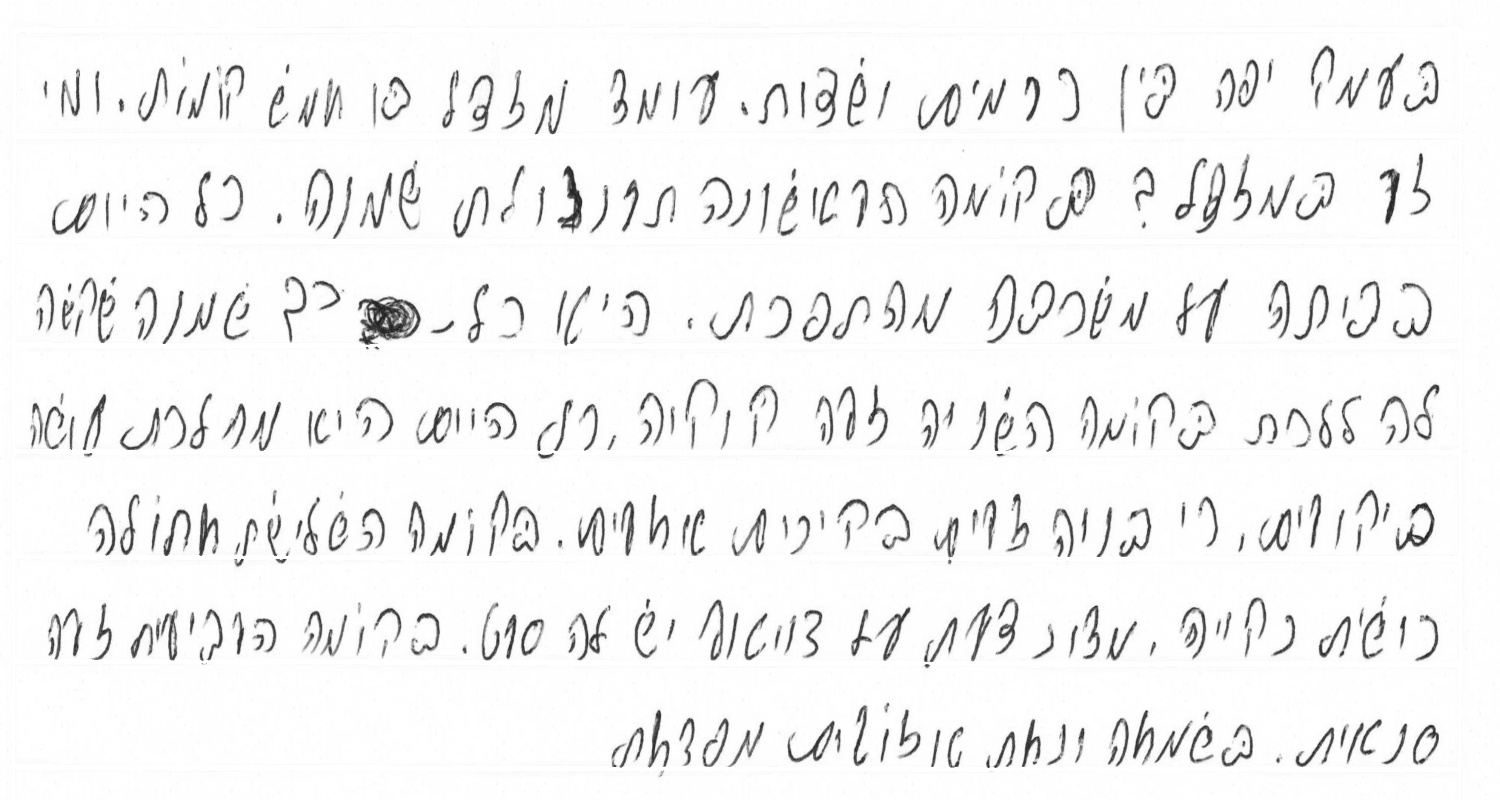 בעמק יפה בין כרמים ושדות. עומד מגדל בן חמש קומות. ומי
גר במגדל? בקומה הראשונה תרנגולת שמנה. כל היום
בביתה על משכבה מתהפכת. היא כל-כך שמנה שקשה
לה ללכת בקומה השניה גרה קוקיה, כל היום היא מהלכת עושה
ביקורים, כי בניה גרים בקינים אחרים. בקומה השלישת חתולה
כושית נקייה, מצונצעת על צוואר יש לה סרט. בקומה הרביעית גרה
סנאית. בשמחה ונחת אגוזים מפצחת